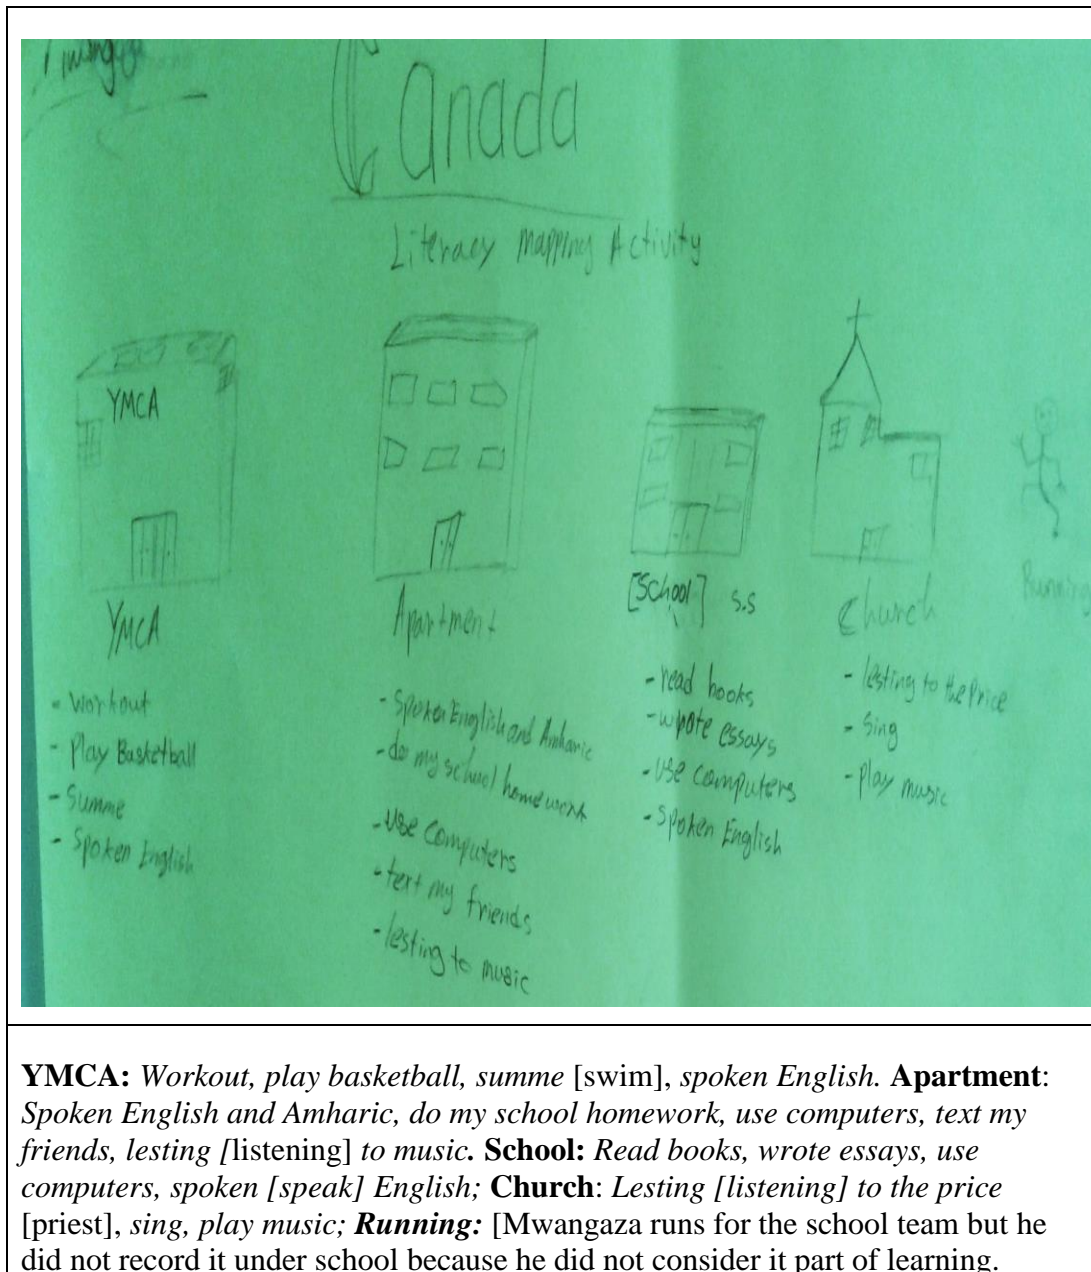 Canada
Literacy Mapping Activity
YMCA
YMCA
- workout
- Play Basketball
- Summe
- Spoken English
Apartment
- Spoken English and Amharic
- do my school homework
- use computers
- text my friends
- lesting to music
[School] s.s
- read books
- wrote essays
- use computers
- Spoken English
Church
- lesting to the Price
- Sing
- play music
Running
YMCA: Workout, play basketball, summe [swim], spoken English. Apartment:
Spoken English and Amharic, do my school homework, use computers, text my
friends, lesting [listening] to music. School: Read books, wrote essays, use
computers, spoken [speak] English; Church: Lesting [listening] to the price
[priest], sing, play music; Running: [Mwangaza runs for the school team but he
did not record it under school because he did not consider it part of learning.